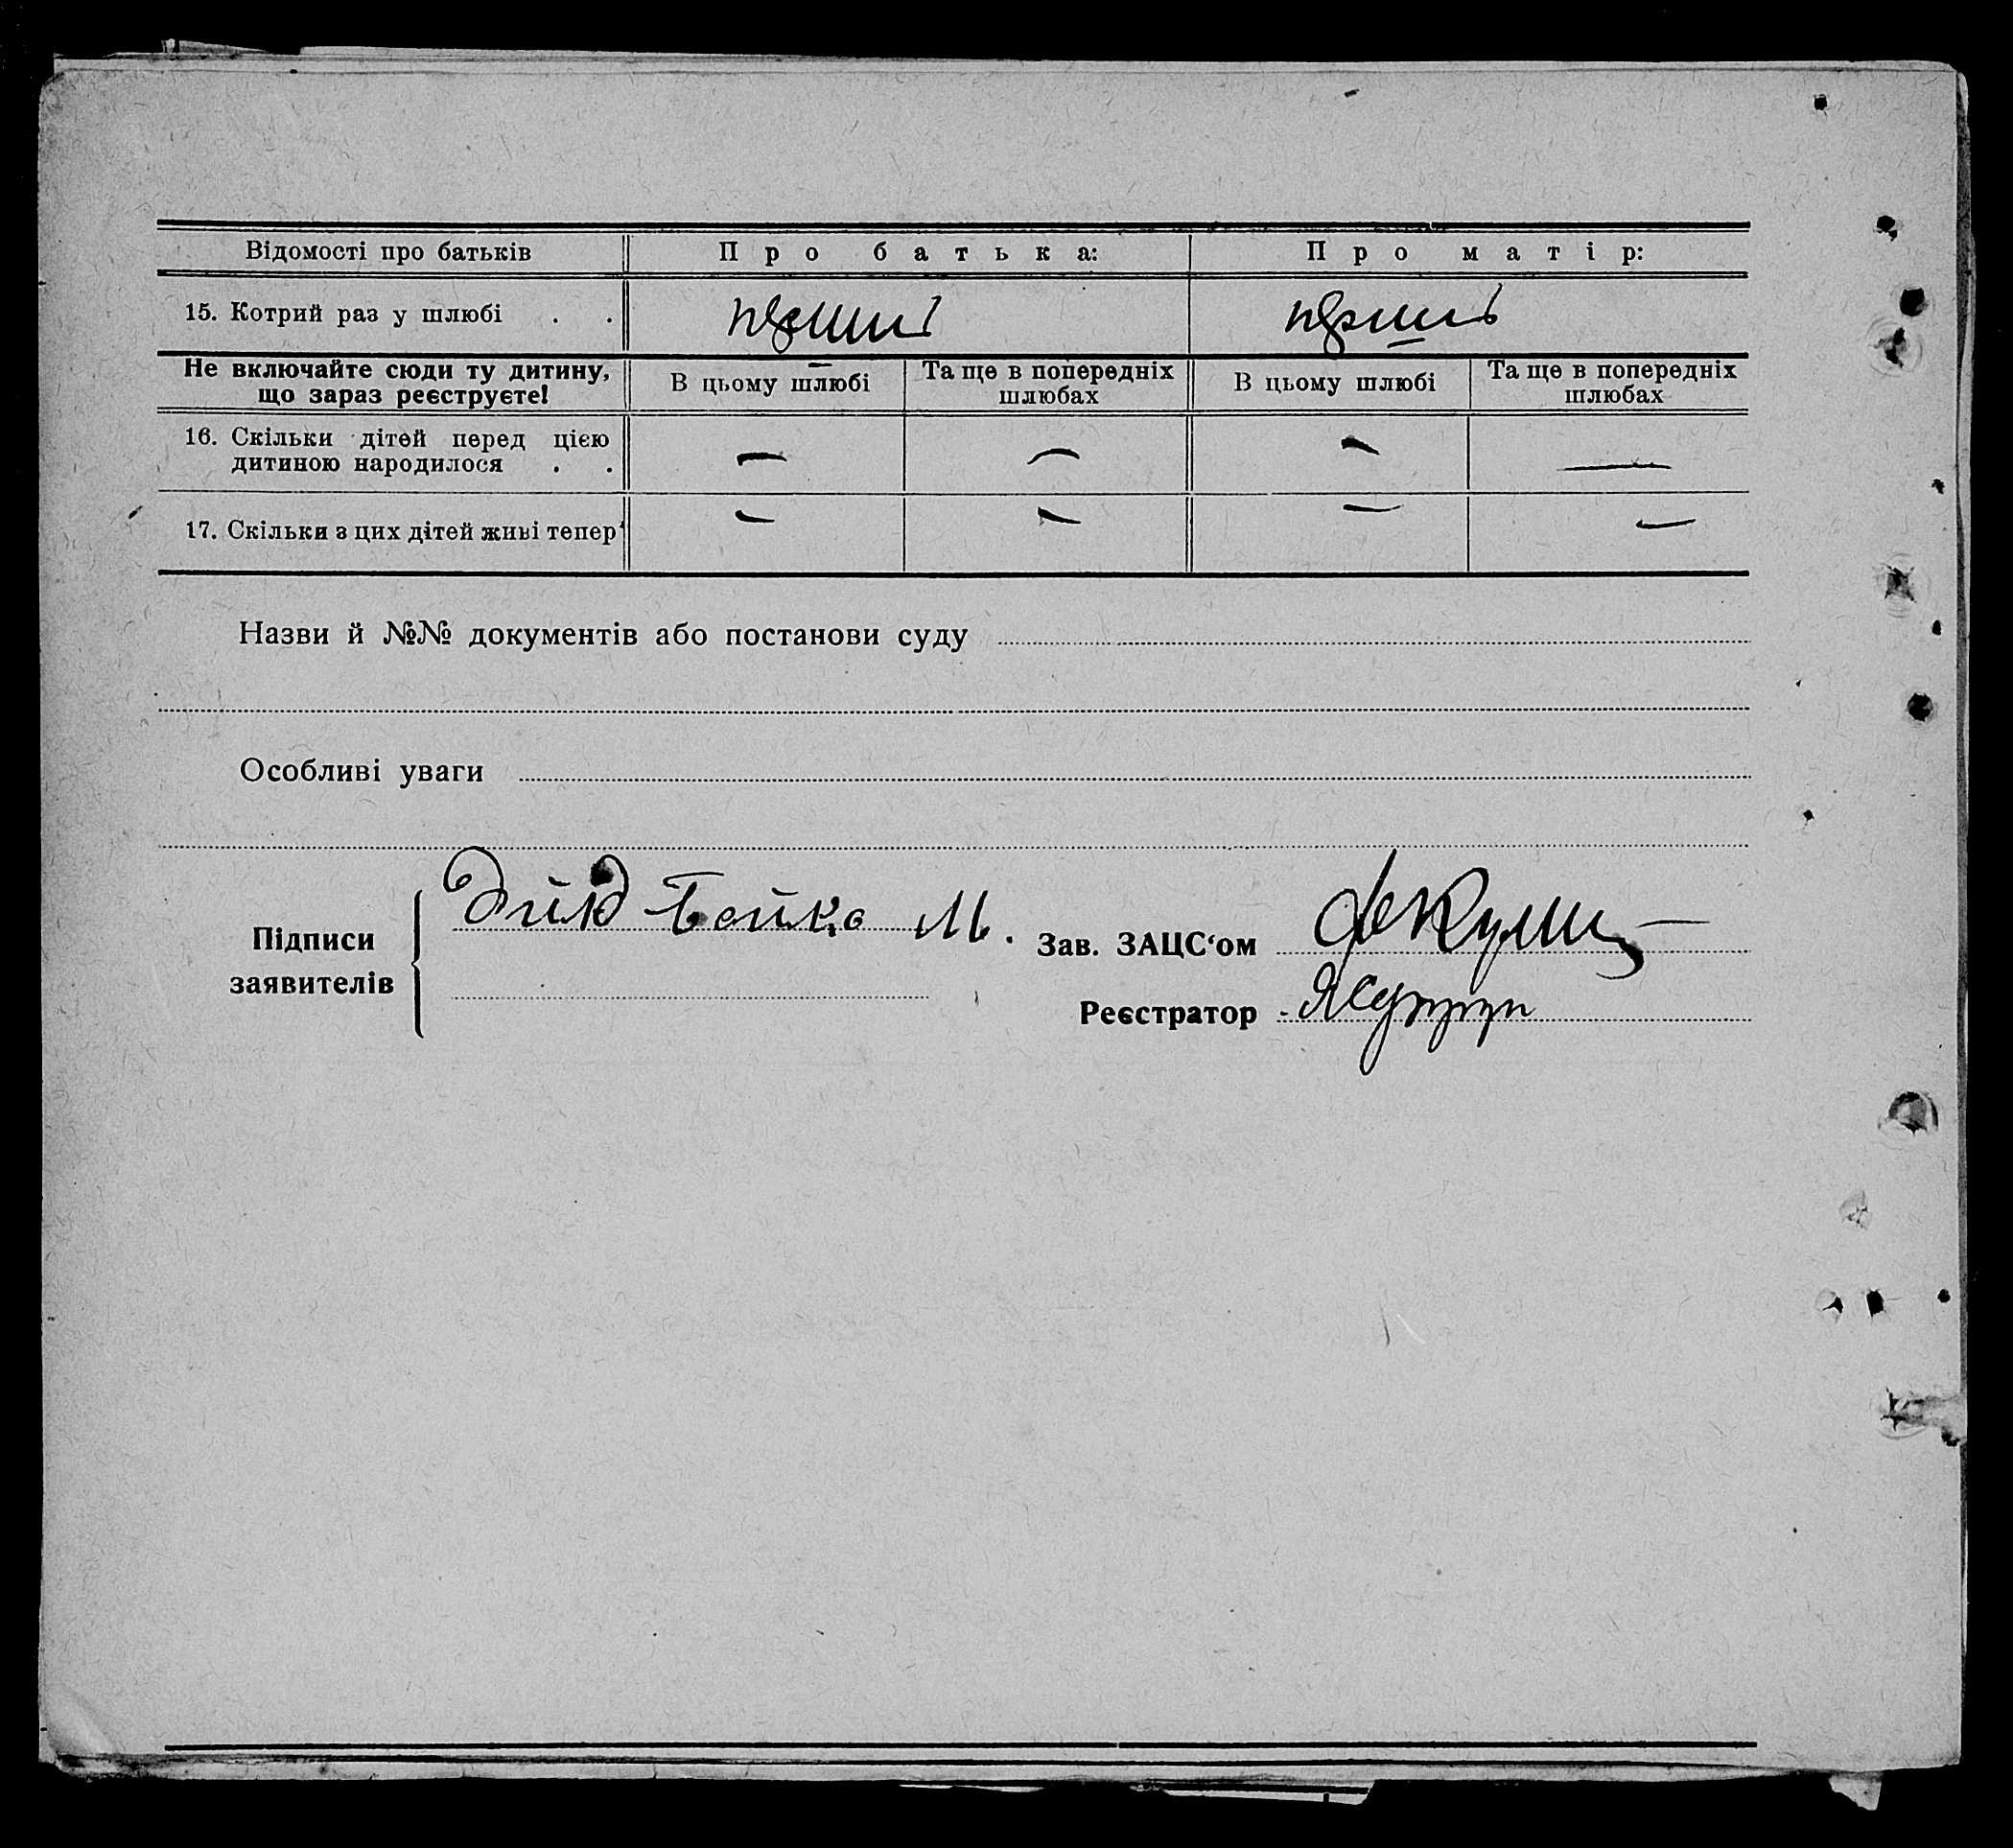 Відомості про батьків П р о б а т ь к а: П р о м а т і р:
15. Котрий раз у шлюбі . . перший перший
Не включайте сюди ту дитину, що зараз реєструєте! В цьому шлюбі Та ще в попередніх шлюбах В цьому шлюбі Та ще в попередніх шлюбах
16. Скільки дітей перед цією — — — —
дитиною народилося . .
17. Скільки з цих дітей живі тепер — — — —
Назви й №№ документів або постанови суду
Особливі уваги
Підписи заявителів Бойко М.
Зав. ЗАЦС‘ом
Реєстратор